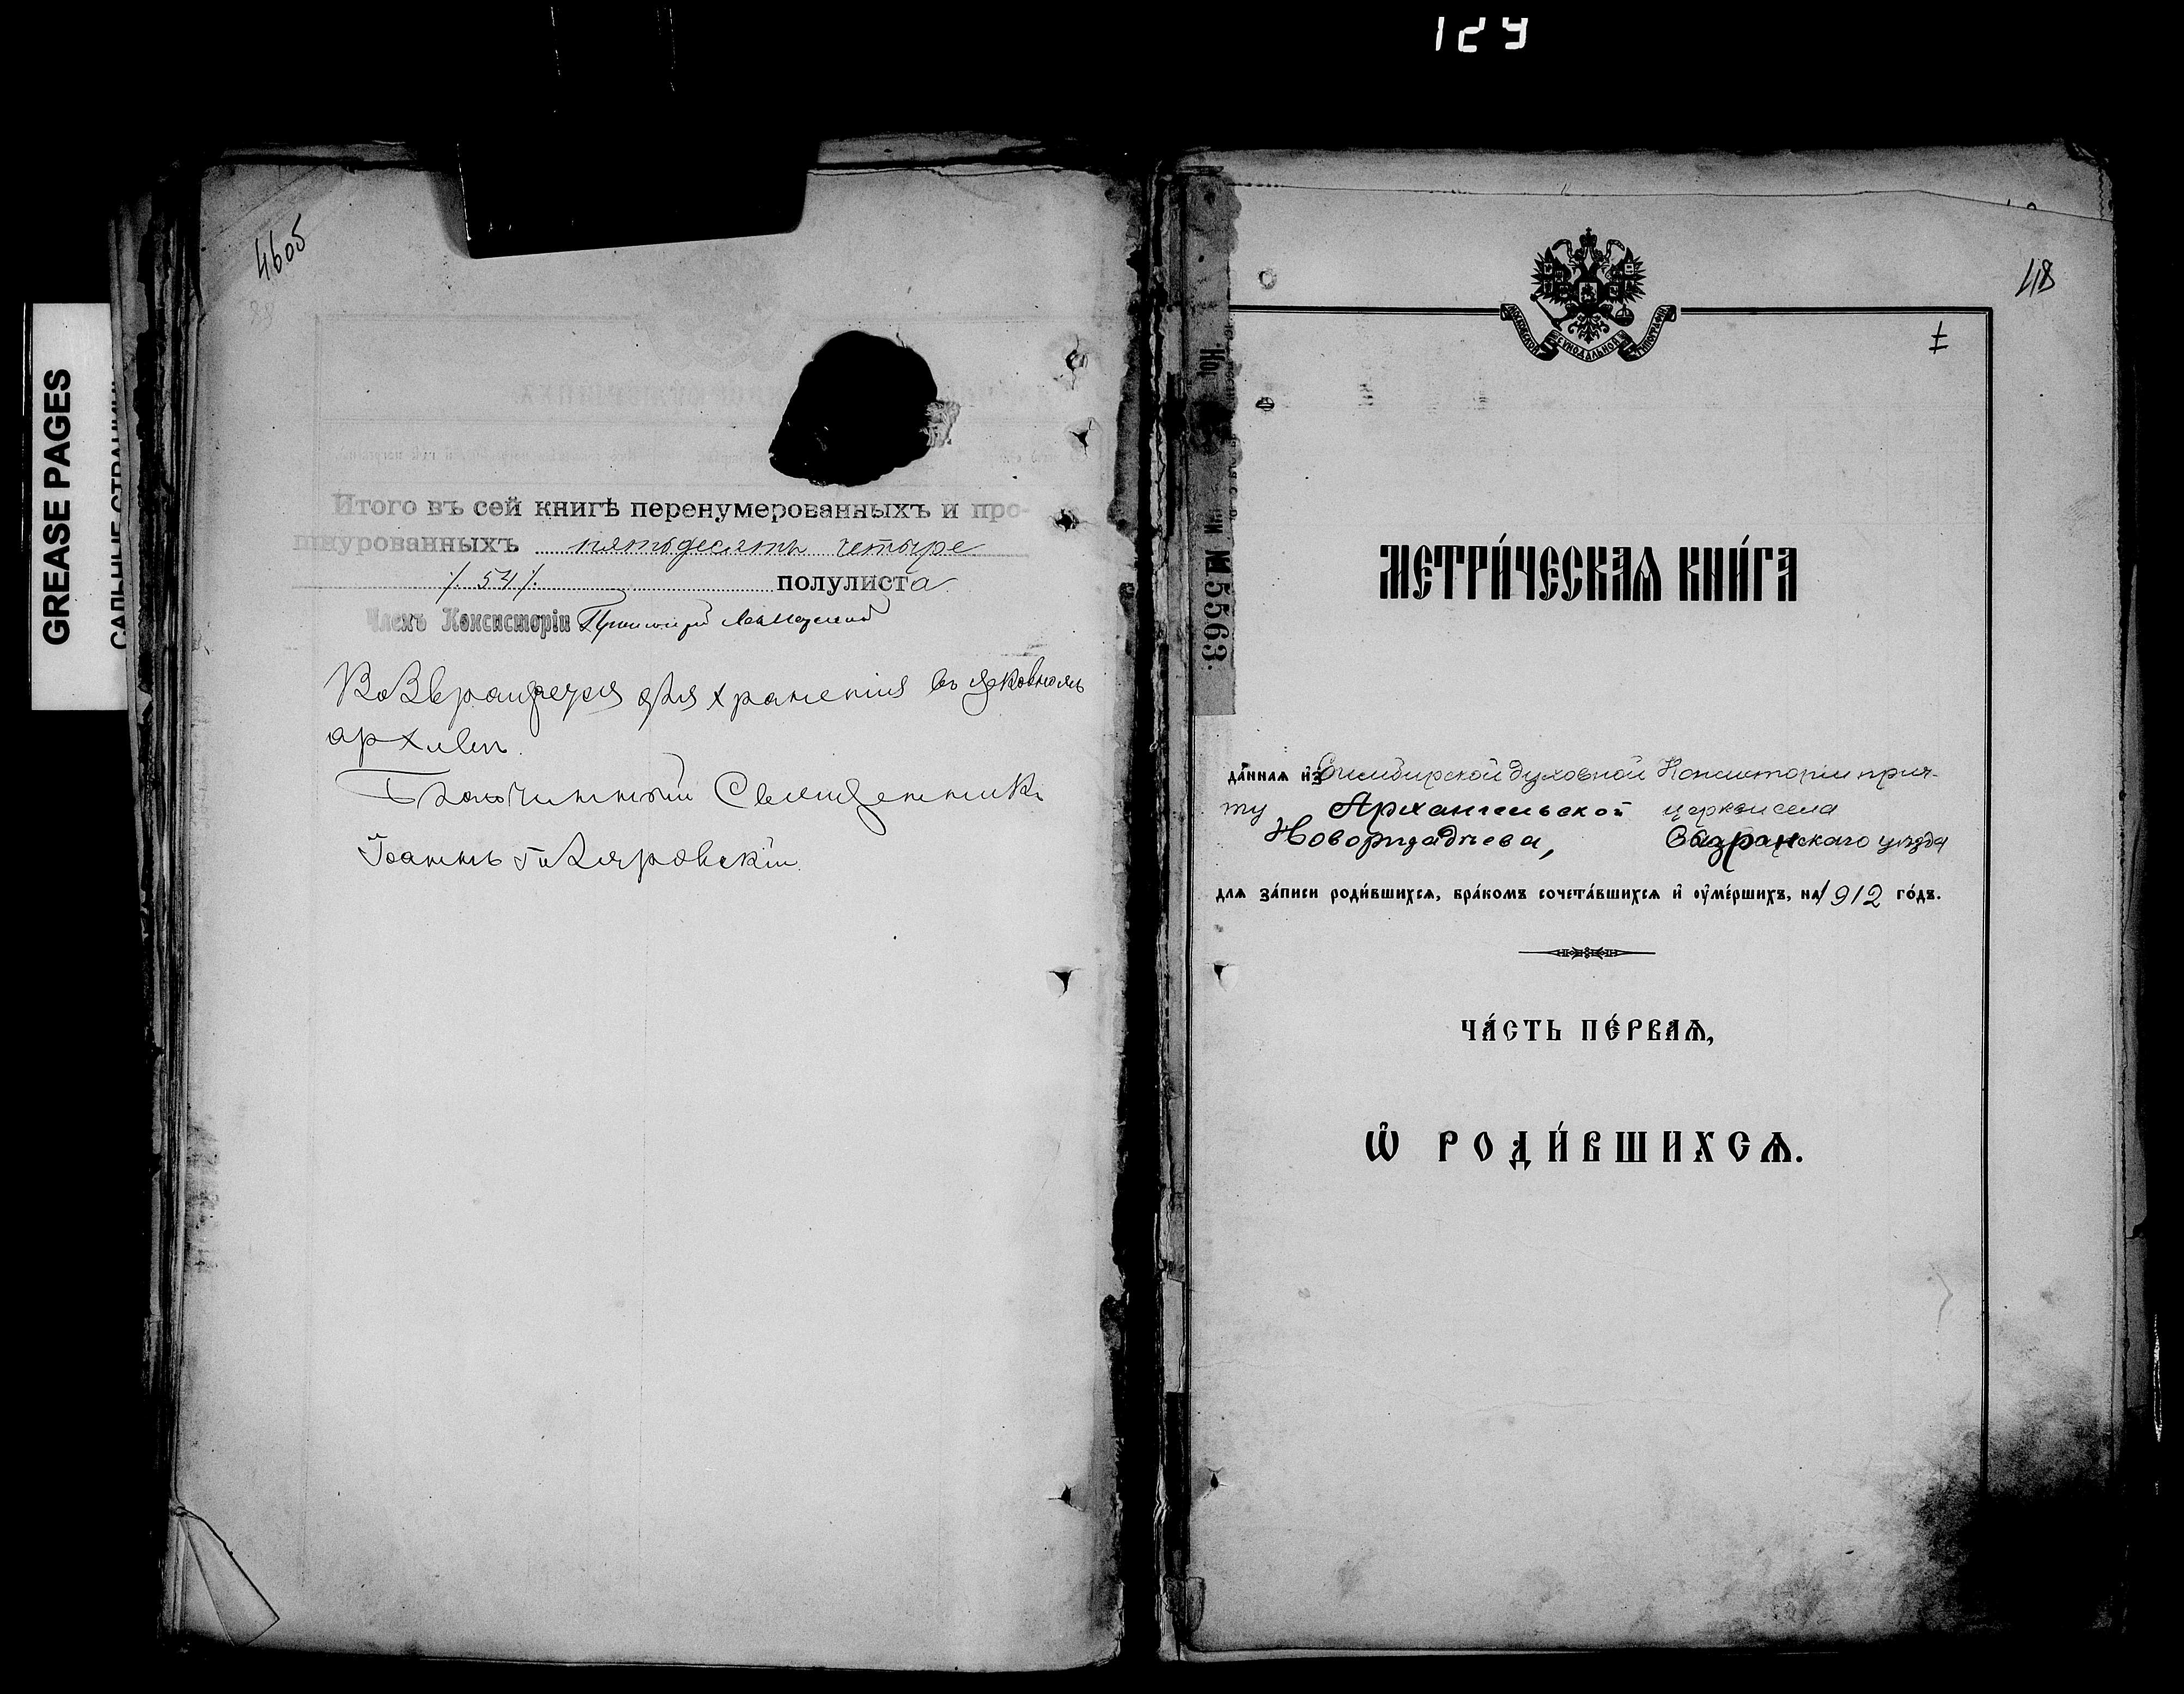 129
GREASE PAGES
САЛЬНЫЕ СТРАНИЦЫ
4605
Итого въ сей книгѣ перенумерованныхъ и про-
шнурованныхъ пятьдесятъ четыре
/. 54 /. полулиста
Членъ Консисторіи
Возвращается для хранения въ церковномъ
архивѣ.
Благочинный Священникъ
Іоаннъ Гиляровскій
48
МОСКОВСКОЙ СѴНОДАЛЬНОЙ ТИПОГРАФІИ
№ 5563.
МЕТРИ́ЧЕСКАѦ КНИ́ГА
да́ннаѧ и҆з̾ Симбирской духовной Консисторіи прич-
ту Архангельской церкви села
Новорѣдачева, Сызранскаго уѣзда
длѧ за́писи роди́вшихсѧ, бра́комъ сочета́вшихсѧ и҆ ᲂу҆ме́ршихъ, на 1912 го́дъ.
ЧА́СТЬ ПЕ́РВАѦ,
Ѡ҆ РОДИ́ВШИХСѦ.